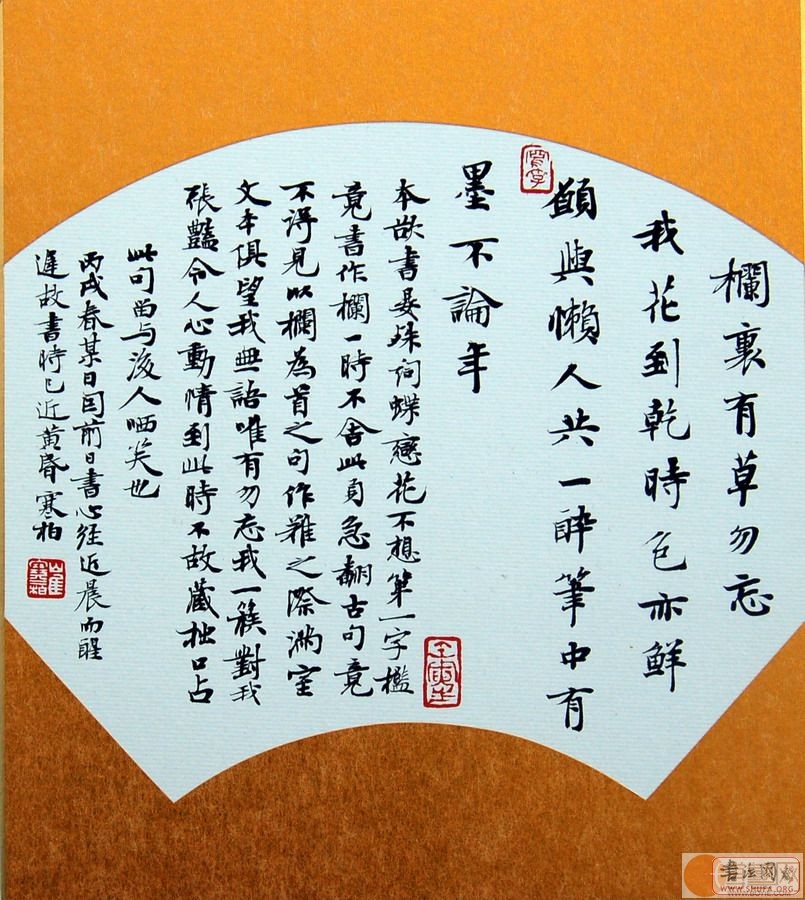 欄裏有草勿忘
我花到乾時色亦鮮
顧與懶人共一醉筆中有
墨不論年
本欲書晏殊詞蝶戀花不想第一字檻
竟書作欄一時不舍此頁急翻古句竟
不得見以欄為首之句作難之際滿室
文本俱望我無語唯有勿忘我一簇對我
張豔令人心動情到此時不故藏拙口占
此句留与後人哂笑也
丙戌春某日因前日書心經近晨而醒
遲故書時已近黃昏寒柏
書法网
WWW.SHUFA.ORG